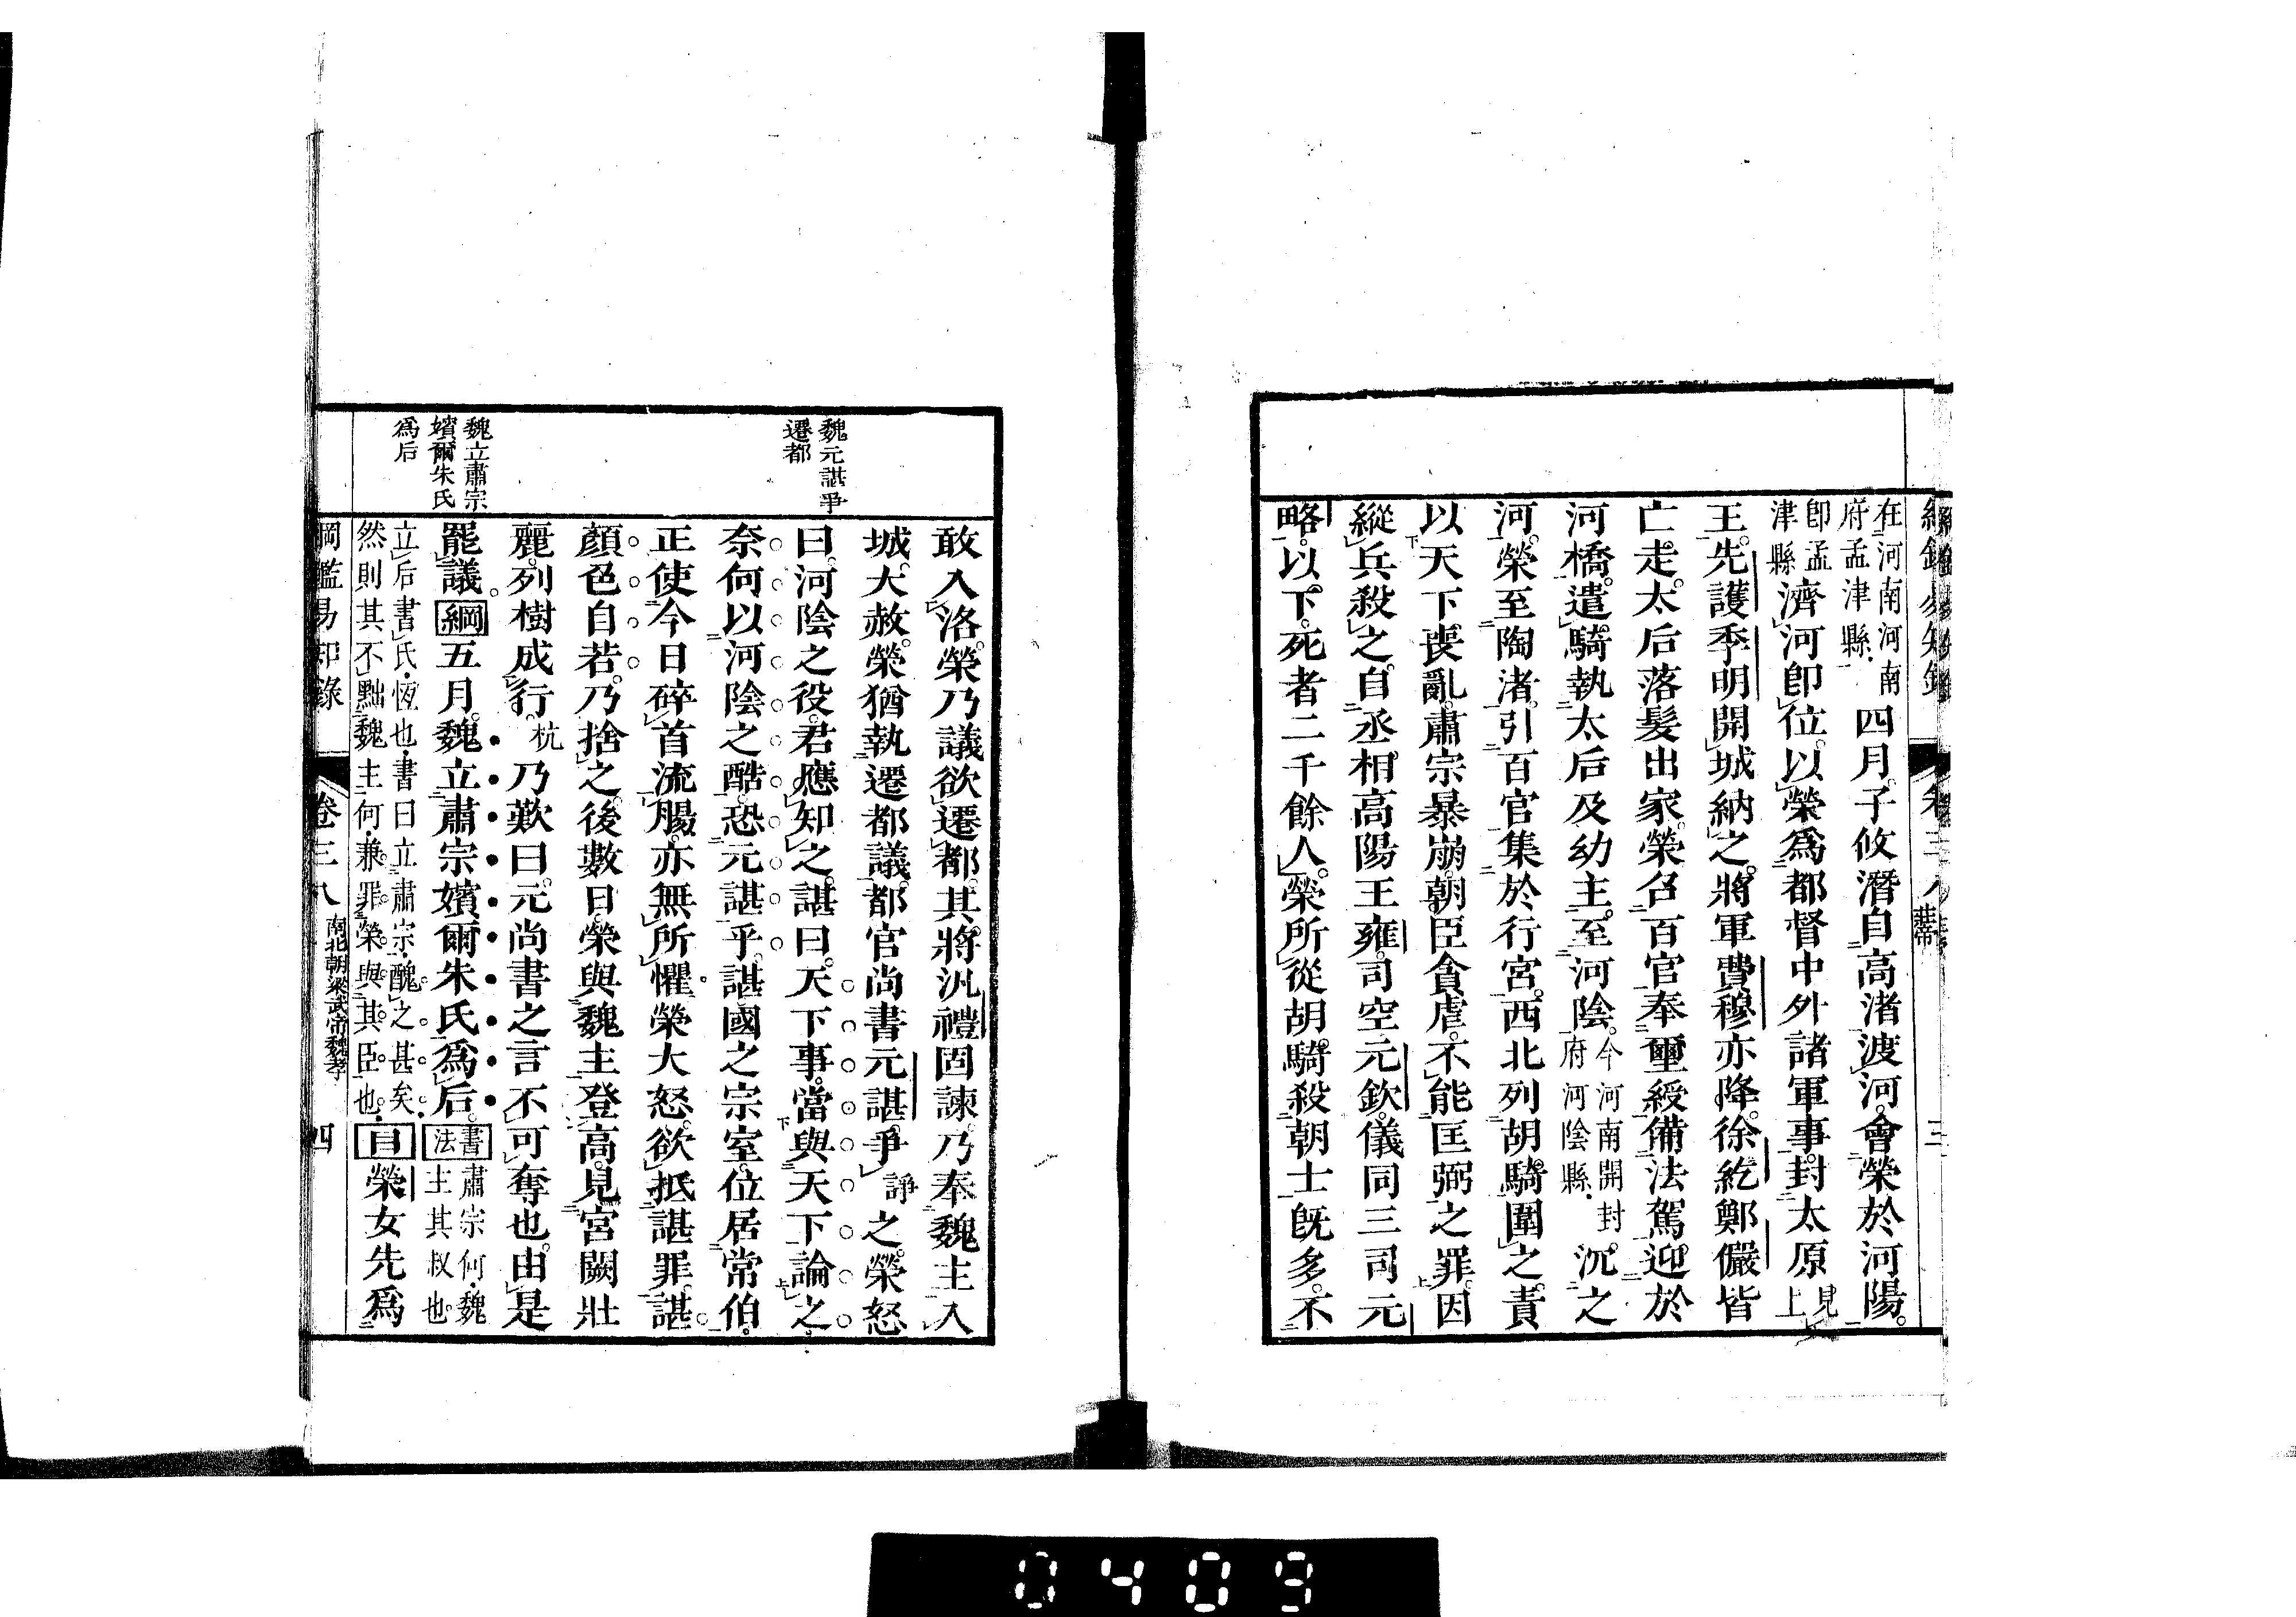 在河南河南
府孟津縣
四月子攸潛自高渚波河會榮於河陽
即孟
津縣
濟河即位以榮爲都督中外諸軍事封太原
見
上
王先護季明開城納之將軍費穆亦降徐紇鄭儼皆
亡走太后落髮出家榮召百官奉璽綬備法駕迎於
河橋遣騎執太后及幼主至河陰
今河南開封
府河陰縣
沉之
河榮至陶渚引百官集於行宮西北列胡騎圍之責
以天下喪亂肅宗暴崩朝臣貪虐不能匡弼之罪因
縱兵殺之自丞相高陽王雍司空元欽儀同三司元
略以下死者二千餘人榮所從胡騎殺朝士旣多不
敢入洛榮乃議欲遷都其將汎禮固諫乃奉魏主入
城大赦榮猶執遷都議都官尚書元諶爭
諍
之榮怒
魏元諶爭
遷都
曰河陰之役君應知之諶曰天下事當與天下論之
奈何以河陰之酷恐元諶乎諶國之宗室位居常伯
正使今日碎首流腸亦無所懼榮大怒欲抵諶罪諶
顏色自若乃捨之後數日榮與魏主登高見宮闕壯
麗列樹成行
杭
乃歎曰元尚書之言不可奪也由是
魏立肅宗
嬪爾朱氏
爲后
罷議綱五月魏立肅宗嬪爾朱氏爲后
書法
肅宗何魏
主其叔也
立后書氏恆也書曰立肅宗醜之甚矣
然則其不黜魏主何兼罪榮與其臣也
目榮女先爲
綱鑑易知錄
卷三八
南北朝梁武帝魏孝
四